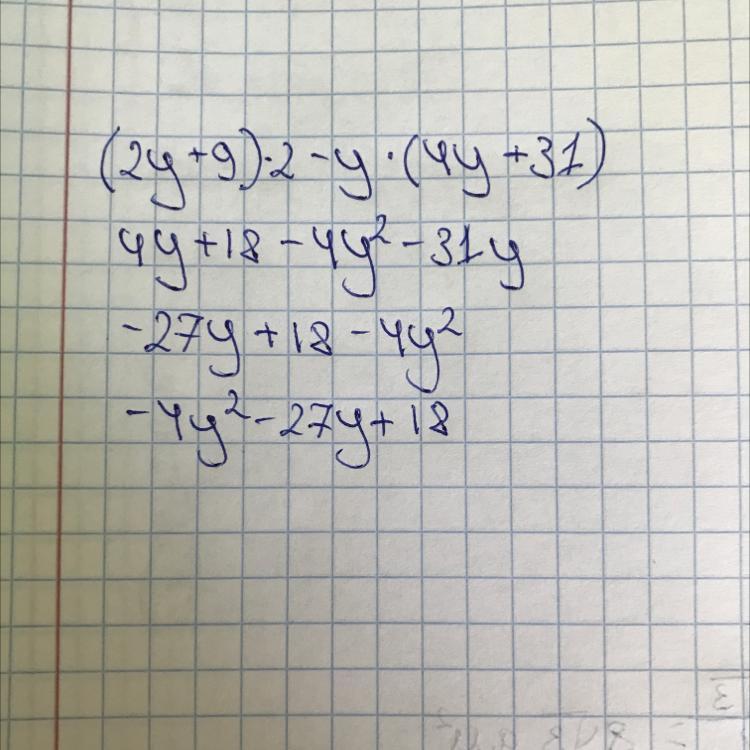 (2y+9)·2-y·(4y+31)
4y+18-4y²-31y
-27y+18-4y²
-4y²-27y+18